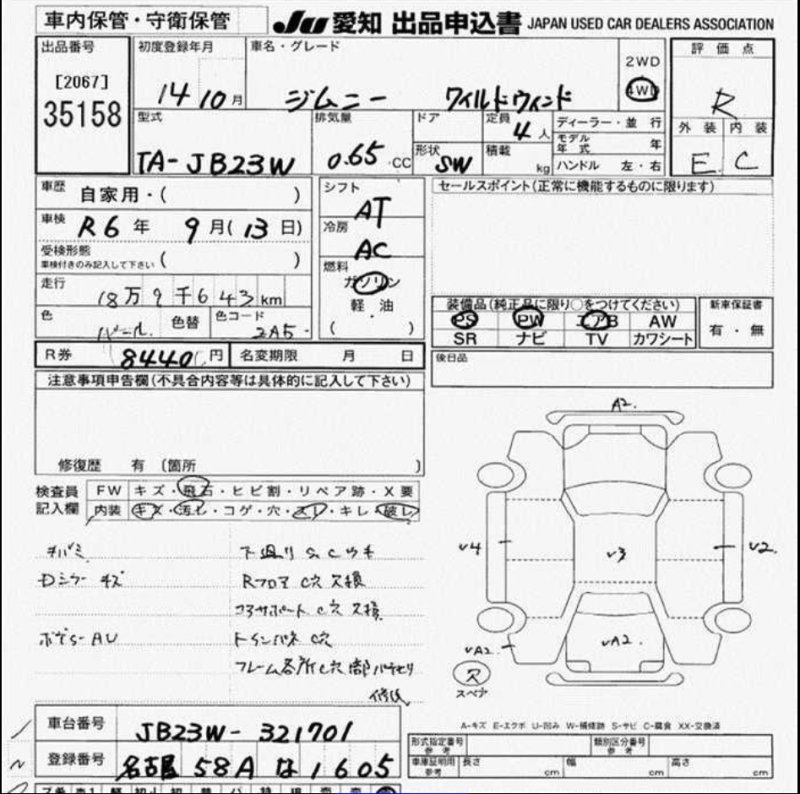 車内保管・守衛保管
JU 愛知 出品申込書 JAPAN USED CAR DEALERS ASSOCIATION
出品番号
[2067]
35158
初度登録年月
14 10月
車名・グレード
ジムニー ワイルドウィンド
2WD
4WD
評価点
R
外装 内装
E C
型式
TA-JB23W
排気量
0.65 CC
ドア
形状
SW
定員
4人
積載
kg
ディーラー・並行
モデル年式 年
ハンドル 左・右
車歴
自家用・( )
車検
R6年 9月(13日)
受検形態
車検付きのみ記入して下さい ( )
走行
18万9千643km
色
パール
色替
色コード
2A5
シフト
AT
冷房
AC
燃料
ガソリン
軽・油
( )
セールスポイント(正常に機能するものに限ります)
装備品(純正品に限り○をつけてください)
PS PW エアB AW
SR ナビ TV カワシート
新車保証書
有・無
R券 8440円
名変期限 月 日
後日品
注意事項申告欄(不具合内容等は具体的に記入して下さい)
修復歴 有 〔箇所 〕
検査員記入欄
FW キズ・飛石・ヒビ割・リペア跡・X要
内装 キズ・汚れ・コゲ・穴・スレ・キレ・破レ
下廻り S、C
Dミラー キズ
Rフロア C穴 欠損
コアサポート C穴 欠損
ボデーS-AU
C穴
フレーム各所C穴
修復
A2.
V4
V3
V2.
VA2
VA2.
スペア
A-キズ E-エクボ U-凹み W-補修跡 S-サビ C-腐食 XX-交換済
車台番号 JB23W-321701
登録番号 名古屋 58A な 1605
形式指定番号
参考
類別区分番号
参考
車庫証明用
参考
長さ cm
幅 cm
高さ cm